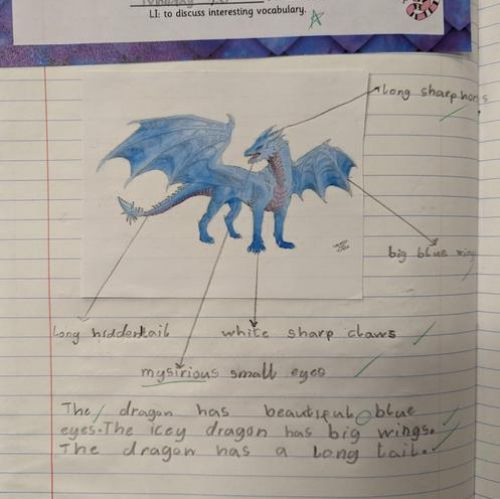 LI: to discuss interesting vocabulary.
long sharp horns
big blue wing
long hidden tail
white sharp claws
mysirious small eyes
The dragon has beautiful blue
eyes. The icey dragon has big wings.
The dragon has a long tail.